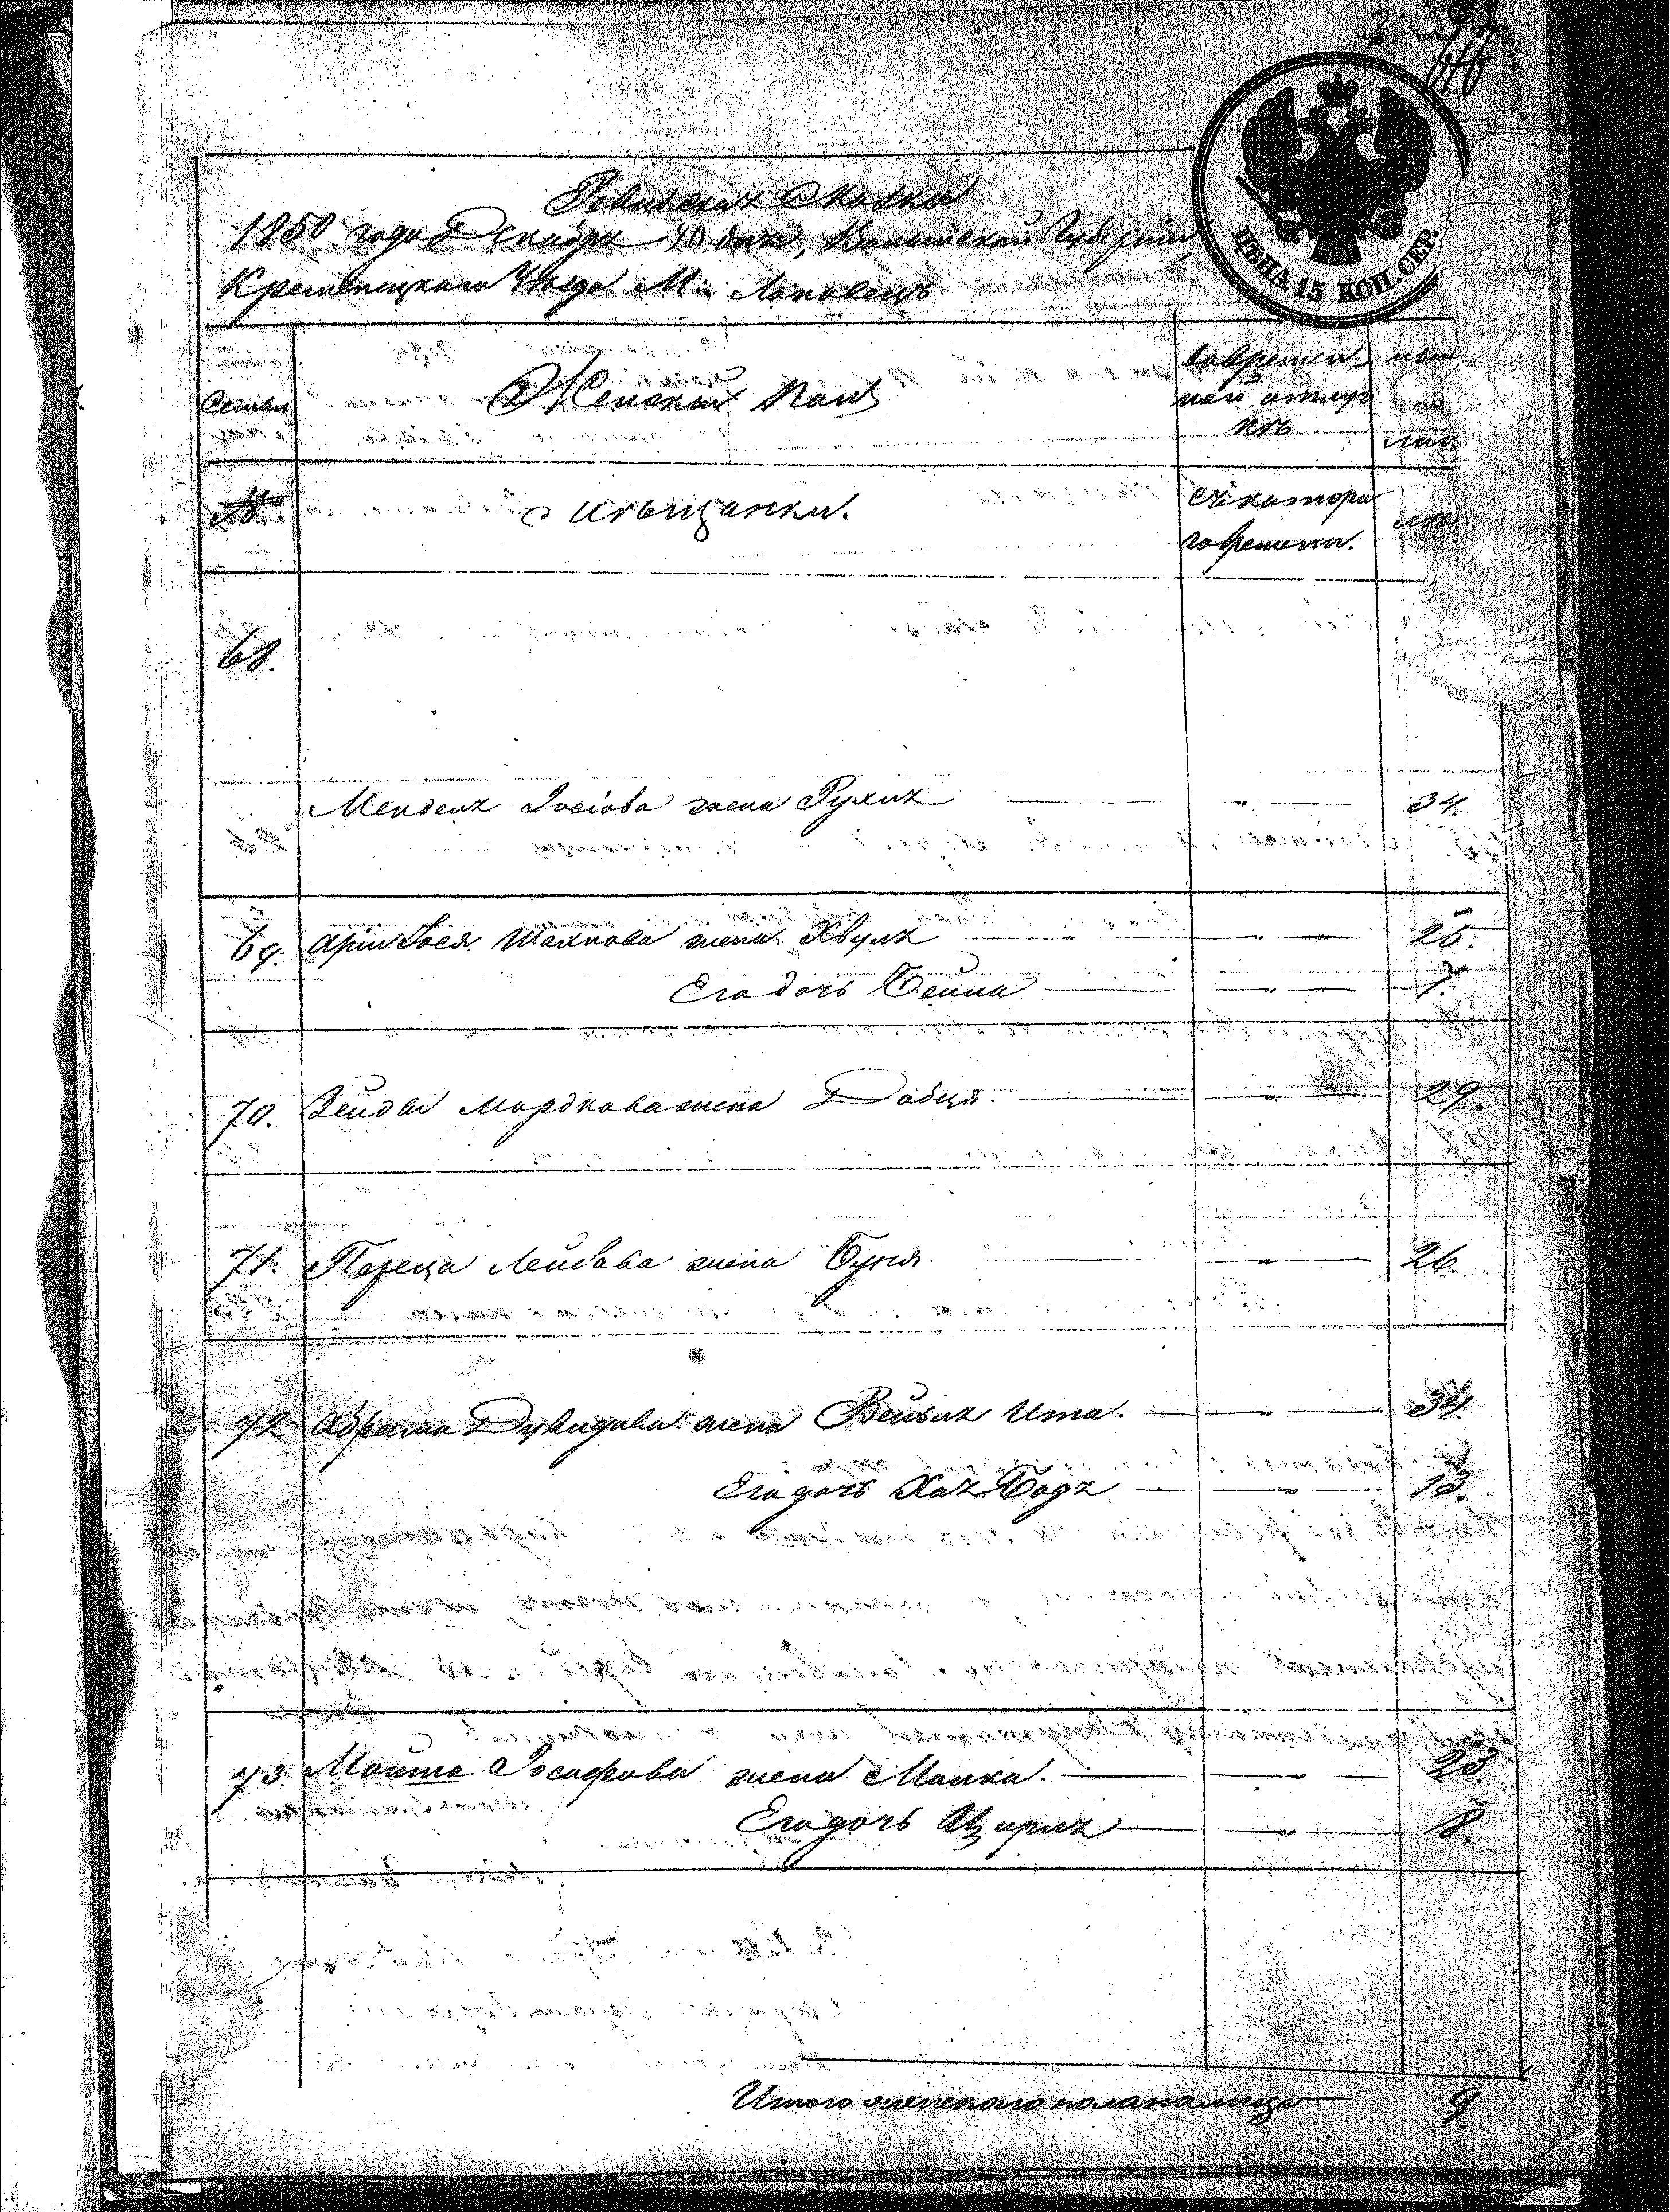 ЦѢНА 15 КОП. СЕР.
Ревизская Сказка
1850 года Декабря 10 дня, Волынской Губернiи,
Кременецкаго Уѣзда М. Лановецъ
Семьи
Женскiй Полъ
вовремен
ной отлуч
кѣ
№
мѣщанки.
съ котора
го времени.
лѣ
68.
Менделя Iосiова жена Рухля " 34.
69. Арiи Iося Шахнова жена Хвуля " 25.
Его дочь Бейла " 7.
70. Зейды Мордкова жена Добця " 29.
71. Переца Лейбова жена Буня " 26.
72 Абрама Дувидова жена Бейля Ита. " 34.
Его дочь Хая Бодя " 13.
73. Мошка Iосифова жена Малка. " 23
Его дочь Цирля " 8.
Итого женскаго пола налицо 9